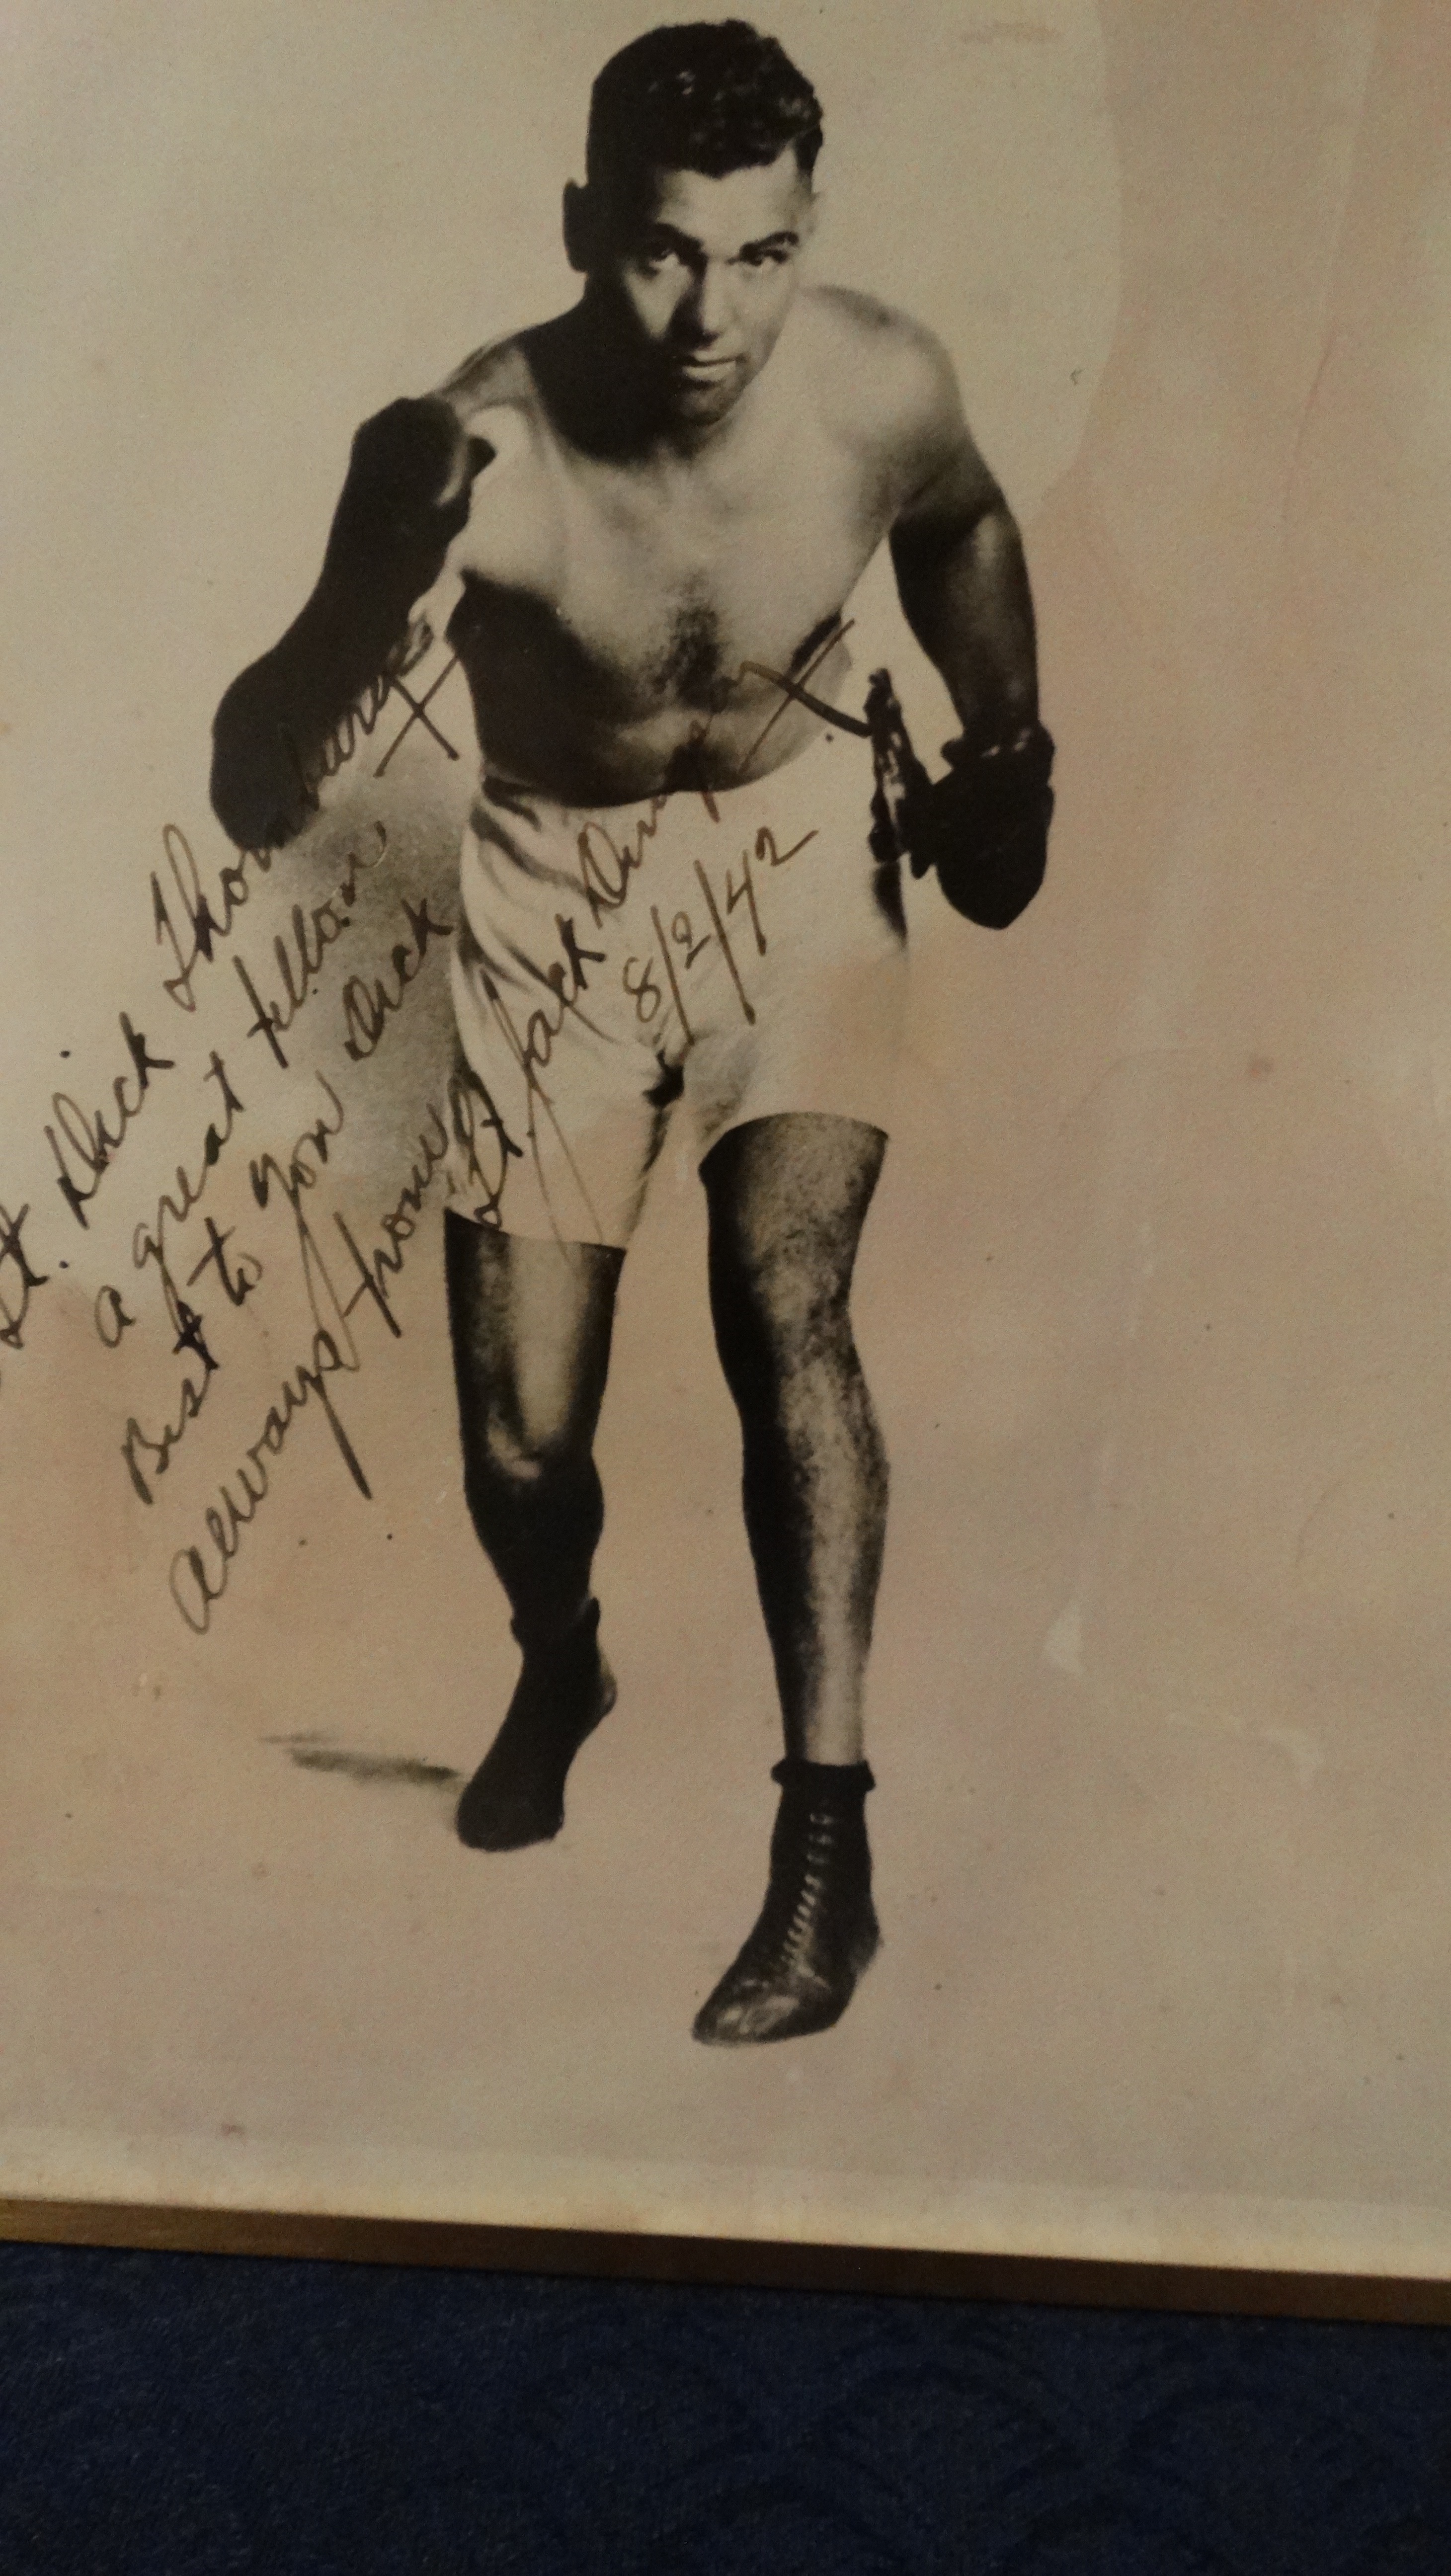 Lt. Dick Thornburg
a great fellow
Best to you Dick
always from
Lt. Jack Dempsey
8/2/42